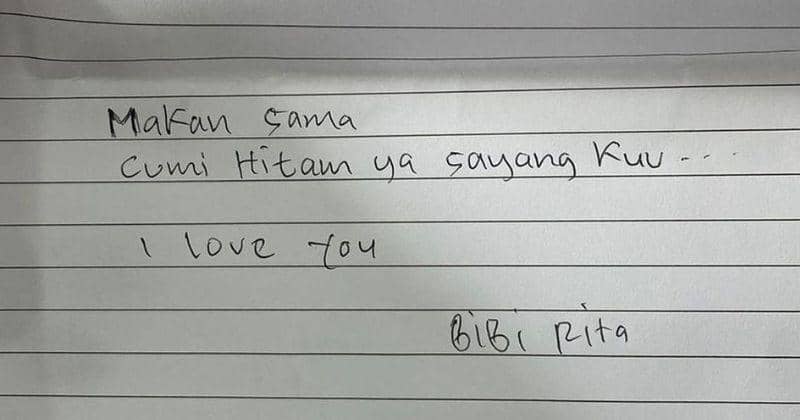 Makan sama
Cumi Hitam ya sayang Kuu...
I love You
BiBi Rita